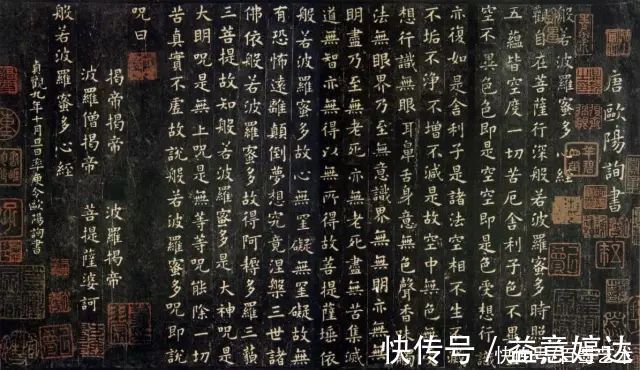 唐歐陽詢書
般若波羅蜜多心經
觀自在菩薩行深般若波羅蜜多時照
五蘊皆空度一切苦厄舍利子色不異
空不異色色即是空空即是色受想行識
亦復如是舍利子是諸法空相不生不
不垢不淨不增不減是故空中無色無
想行識無眼耳鼻舌身意無色聲香味
法無眼界乃至無意識界無無明亦無
明盡乃至無老死亦無老死盡無苦集滅
道無智亦無得以無所得故菩提薩埵依
般若波羅蜜多故心無罣礙無罣礙故無
有恐怖遠離顛倒夢想究竟涅槃三世諸
佛依般若波羅蜜多故得阿耨多羅三藐
三菩提故知般若波羅蜜多是大神呪是
大明呪是無上呪是無等等呪能除一切
苦真實不虛故說般若波羅蜜多呪即說
呪曰
揭帝揭帝 波羅揭帝
波羅僧揭帝 菩提薩婆訶
般若波羅蜜多心經
貞觀九年十月旦日率更令歐陽詢書
快传号／益意婷达